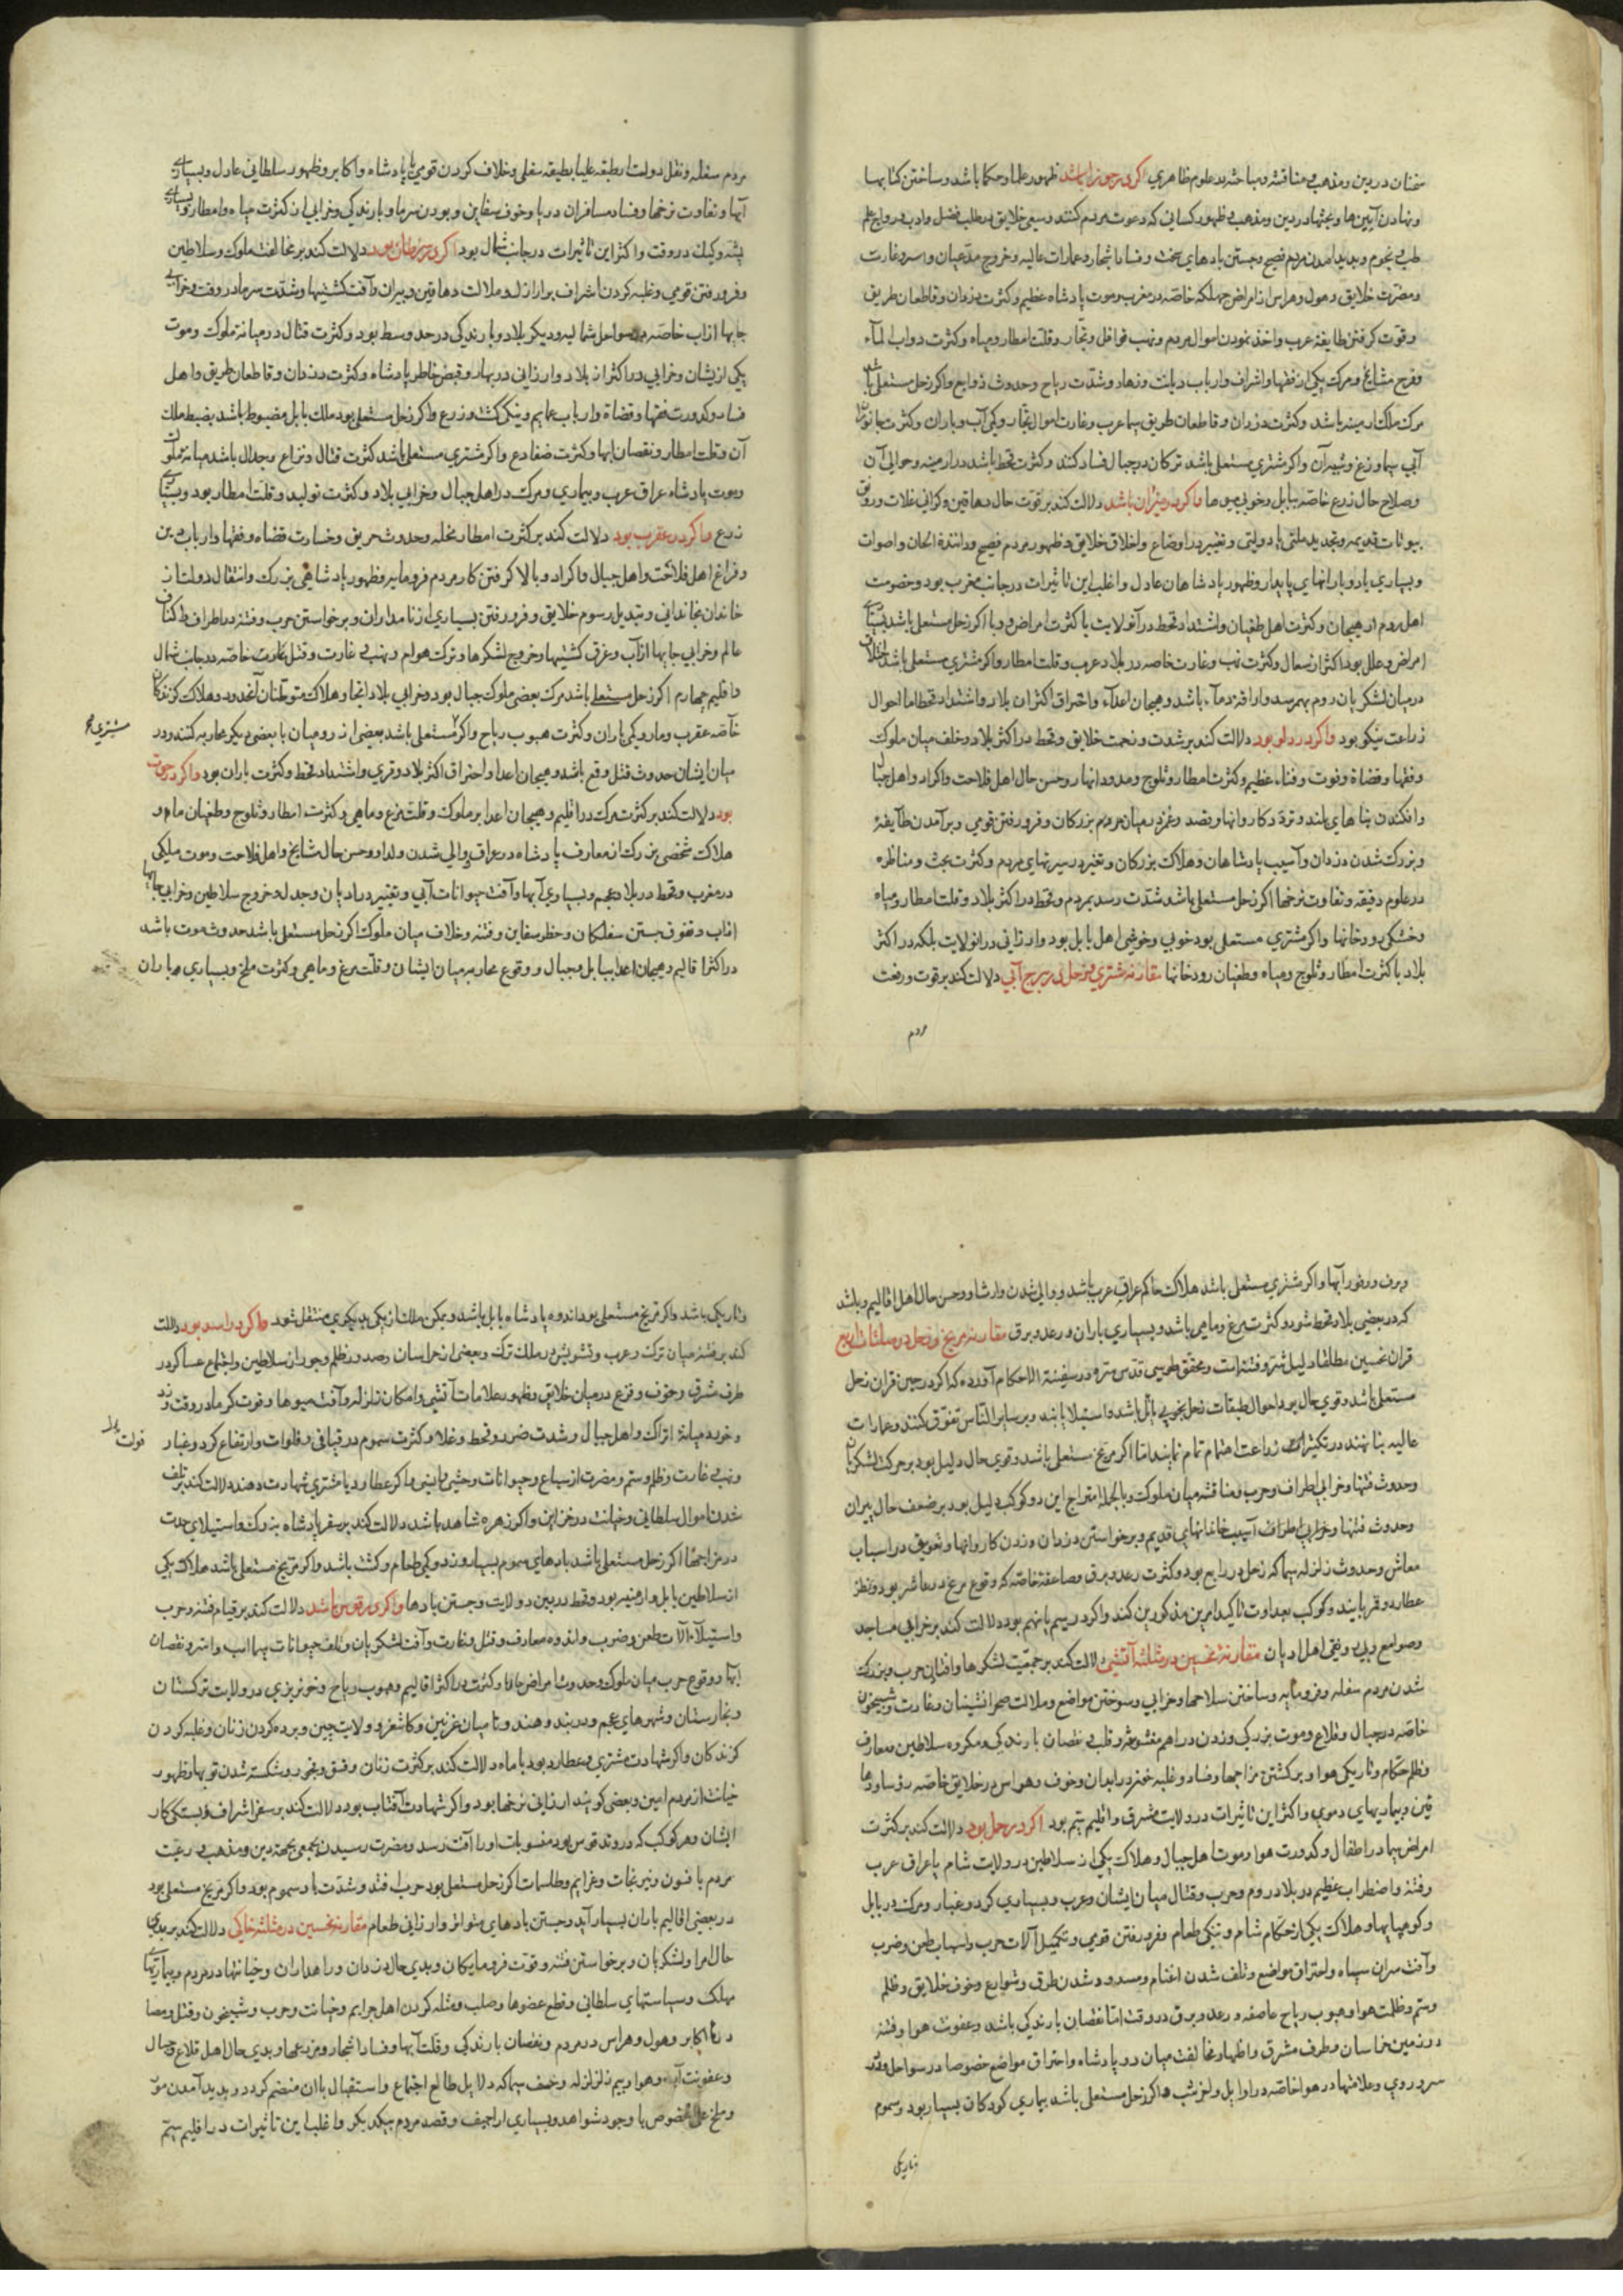 سخنان در دین و مذهب و مناقشه و مباحثه در علوم ظاهری اگر در جوزا باشد ظهور علما و حکما باشد و ساختن کتابها
و نهادن آیین ها و بحثها در دین و مذهب و ظهور کسانی که دعوت مردم کنند و سعی خلایق در طلب فضل و ادب و رواج علم
طب و نجوم و پدید آمدن مردم فصیح و جستن بادهای سخت و فساد اشجار و عمارات عالیه و خروج مدعیان و اسر و غارت
و مضرت خلایق و هول و هراس از امراض مهلکه خاصه در مغرب و موت پادشاه عظیم و کثرت دزدان و قاطعان طریق
و قوت گرفتن طایفه عرب و اخذ نمودن اموال مردم و نهب قوافل و تجار و قلت امطار و میاه و کثرت دواب الماء
و فرح مشایخ و مرک یکی از فقها و اشراف و ارباب دیانت و زهاد و شدت ریاح و حدوث زوابع و اگر زحل مستعلی باشد
مرک ملک ارمینه باشد و کثرت دزدان و قاطعان طریق سیما عرب و غارت اموال تجار و کمی آب و باران و کثرت جانوران
آبی سیما وزغ و شیر آن و اگر مشتری مستعلی باشد ترکان در جبال فساد کنند و کثرت قحط باشد در ارمینه و حوالی آن
و صلاح حال زرع خاصه ببابل و خوبی میوها و اگر در میزان باشد دلالت کند بر قوت حال دهاقین و کرانی غلات و رونق
بیوتات قدیمه و تجدید ملتی یا دولتی و تغییر در اوضاع و اخلاق خلایق و ظهور مردم فصیح و داننده الحان و اصوات
و بسیاری باد و بارانهای پایدار و ظهور پادشاهان عادل و اغلب این تاثیرات در جانب مغرب بود و خصومت
اهل روم از هیجان و کثرت اهل طغیان و اشتداد قحط در آن ولایت با کثرت امراض و وبا اگر زحل مستعلی باشد بسیاری
امراض و علل بود اکثر از سعال و کثرت نهب و غارت خاصه در بلاد عرب و قلت امطار و اگر مشتری مستعلی باشد اختلاف
در میان لشکریان روم بهم رسد و اراقه دماء باشد و هیجان اعداء و احتراق اکثر آن بلاد و اشتداد قحط اما احوال
زراعت نیکو بود و اگر در دلو بود دلالت کند بر شدت و زحمت خلایق و قحط در اکثر بلاد و خلف میان ملوک
و فقها و قضاة و فوت و فناء عظیم و کثرت امطار و ثلوج و مدود انهار و حسن حال اهل فلاحت و اکراد و اهل جبال
و افکندن بناهای بلند و تردد کاروانها و قصد و غمز در میان مردم بزرگان و فرو رفتن قومی و برآمدن طایفه
و بزرگ شدن دزدان و آسیب پادشاهان و هلاکت بزرگان و تغیر در سیرتهای مردم و کثرت بحث و مناظره
در علوم دقیقه و تفاوت نرخها اگر زحل مستعلی باشد شدت رسد بمردم و قحط در اکثر بلاد و قلت امطار و میاه
و خشکی رودخانها و اگر مشتری مستعلی بود خوبی و خوشی اهل بابل بود و ارزانی در آن ولایت بلکه در اکثر
بلاد با کثرت امطار و ثلوج و میاه و طغیان رودخانها مقارنه مشتری و زحل در برج آبی دلالت کند بر قوت و رفعت
مردم
مردم سفله و نقل دولت از طبقه علیا بطبقه سفلی و خلاف کردن قومی با پادشاه و اکابر و ظهور سلطانی عادل و بسیاری
آبها و تفاوت نرخها و فساد مسافران دریا و خوف سفاین و بودن سرما و بارندگی و خرابی از کثرت میاه و امطار و بسیاری
پشه و کیک در وقت و اکثر این تاثیرات در جانب شمال بود اگر در سرطان بود دلالت کند بر مخالفت ملوک و سلاطین
و فرو رفتن قومی و غلبه کردن اشراف بر اراذل و ملالت دهاقین و پیران و آفت کشتیها و شدت سرما در وقت و خرابی
جایها از آب خاصه در سواحل شمالیه و دیگر بلاد و بارندگی در حد وسط بود و کثرت قتال در میانه ملوک و موت
یکی از ایشان و خرابی در اکثر از بلاد و ارزانی در بهار و قبض خاطر پادشاه و کثرت دزدان و قاطعان طریق و اهل
فساد و کدورت فقها و قضاة و ارباب عمایم و نیکی کشت و زرع و اگر زحل مستعلی بود ملک بابل مضبوط باشد بضبط ملک
آن و قلت امطار و نقصان آبها و کثرت ضفادع و اگر مشتری مستعلی باشد کثرت قتال و نزاع و جدال باشد میانه ملوک
و موت پادشاه عراق عرب و بیماری و مرک در اهل جبال و خرابی بلاد و کثرت تولید و قلت امطار بود و بسیاری
زرع و اگر در عقرب بود دلالت کند بر کثرت امطار مخله و حدوث حریق و خسارت قضاه و فقها و ارباب دین
و فراغ اهل فلاحت و اهل جبال و اکراد و بالا گرفتن کار مردم فرومایه و ظهور پادشاهی بزرک و انتقال دولت از
خاندان بخاندانی و تبدیل رسوم خلایق و فرو رفتن بسیاری از نامداران و برخواستن حرب و فتنه در اطراف و اکناف
عالم و خرابی جایها از آب و غرق کشتیها و خروج لشکرها و ترک هوام و نهب و غارت و قتل و تاراج خاصه در جانب شمال
و اقلیم چهارم اگر زحل مستعلی باشد مرک بعضی ملوک جبال بود و خرابی بلاد آنجا و هلاک متوطنان آن حدود و هلاک گزندگان
خاصه عقرب و مار و کمی باران و کثرت هبوب ریاح و اگر مستعلی باشد بعضی از رومیان با بعضی دیگر محاربه کنند و در
مشتری صح
میان ایشان حدوث قتل وقع باشد و هیجان اعدا و احتراق اکثر بلاد و قری و اشتداد قحط و کثرت باران بود و اگر در حوت
بود دلالت کند بر کثرت مرک در اقلیم و هیجان اعدا بر ملوک و قلت مرغ و ماهی و کثرت امطار و ثلوج و طغیان ماء و
هلاکت شخصی بزرک از معارف پادشاه در عراق و والی شدن ولد او و حسن حال مشایخ و اهل فلاحت و موت ملکی
در مغرب و قحط در بلاد عجم و بسیاری آبها و آفت حیوانات آبی و تغییر در ادیان و جدل و خروج سلاطین و خرابی جایها
از آب و تفوق جستن سفلگان و خطر سفاین و فتنه و خلاف میان ملوک اگر زحل مستعلی باشد حدوث موت باشد
در اکثر اقالیم و هیجان اعدا ببابل و جبال و وقوع محاربه میان ایشان و قلت مرغ و ماهی و کثرت ملخ و بسیاری باران
و برف و وفور آبها و اگر مشتری مستعلی باشد هلاکت حاکم عراق عرب باشد و والی شدن وارث او و حسن حال اهل اقالیم و باشد
که در بعضی بلاد قحط شود و کثرت مرغ و ماهی باشد و بسیاری باران و رعد و برق مقارنه مریخ و زحل در مثلثات اربع
قران نحسین مطلقا دلیل شر و فتنه است و محقق طوسی قدس سره در سفینة الاحکام آورده که اگر در حین قران زحل
مستعلی باشد و قوی حال بود احوال طبقات زحل بخوبی مائل باشد و استیلا یابند و بر سایر الناس تفوق کنند و عمارات
عالیه بنا نهند و در تکثیر زراعت اهتمام تمام نمایند اما اگر مریخ مستعلی باشد و قوی حال دلیل بود بر حرکت لشکریان
و حدوث فتنها و خرابی اطراف و حرب و مناقشه میان ملوک و بالجمله امتزاج این دو کوکب دلیل بود بر ضعف حال پیران
و حدوث فتنها و خرابی اطراف و آسیب خاندانهای قدیم و برخواستن دزدان و زدن کاروانها و تعویق در اسباب
معاش و حدوث زلزله سیما که زحل در رابع بود و کثرت رعد و برق و صاعقه خاصه که وقوع مریخ در عاشر بود و نظر
عطارد و قمر باینند و کوکب بعداوت تاکید امرین مذکورین کند و اگر در سیم یا نهم بود دلالت کند بر خرابی مساجد
و صوامع و بی رونقی اهل ادیان مقارنه نحسین در مثلثه آتشی دلالت کند بر جمعیت لشکرها و افشای حرب و بزرک
شدن مردم سفله و فرومایه و ساختن سلاحها و خرابی و سوختن مواضع و ملالت صحرانشینان و غارت و شبیخون
خاصه در جبال و قلاع و موت بزرکی و زدن دراهم مغشوشه و قلب و نقصان بارندگی و مکروه سلاطین و معارف
و ظلم حکام و تاریکی هوا و برگشتن مزاجها و فساد و غلبه خون در ابدان و خوف و هراس در خلایق خاصه رؤسا و دها
قین و بیماریهای دموی و اکثر این تاثیرات در ولایت مشرق و اقلیم سیم بود اگر در حمل بود دلالت کند بر کثرت
امراض سیما در اطفال و کدورت هوا و موت اهل جبال و هلاک یکی از سلاطین در ولایت شام یا عراق عرب
و فتنه و اضطراب عظیم در بلاد روم و حرب و قتال میان ایشان و عرب و بسیاری گرد و غبار و مرک در بابل
و کوهپایها و هلاکت یکی از حکام شام و تنگی طعام و فرو رفتن قومی و تکمیل آلات حرب و اسباب طعن و ضرب
و آفت سران سپاه و احتراق مواضع و تلف شدن اغنام و مسدود شدن طرق و شوارع و خوف خلایق و ظلم
و ستم و ظلمت هوا و هبوب ریاح عاصفه و رعد و برق در وقت اما نقصان بارندگی باشد و عفونت هوا و فتنه
در زمین خراسان و طرف مشرق و اظهار مخالفت میان دو پادشاه و احتراق مواضع خصوصا در سواحل و
سرد و روی و علامتها در هوا خاصه در اوایل و اخر شب و اگر زحل مستعلی باشد بیماری کودکان بسیار بود و سموم
و تاریکی
و تاریکی باشد و اگر مریخ مستعلی بود اندوه پادشاه بابل باشد و ممکن ملک از یکی بدیگری منتقل شود و اگر در اسد بود دلالت
کند بر فتنه میان ترک و عرب و تشویش در ملک ترک و بعضی از خراسان و صد و ظلم و جور از سلاطین و اجتماع عساکر در
طرف شرق و خوف و فزع در میان خلایق و ظهور علامات آتشی و امکان زلزله و آفت میوها و قوت گرما در وقت
و حرب میانه اتراک و اهل جبال و شدت ضرر و قحط و غلا و کثرت سموم در قیافی و فلوات و ارتفاع گرد و غبار
و نهب و غارت و ظلم و ستم و مضرت از سباع و حیوانات وحشی و اگر عطارد یا مشتری شهادت دهند دلالت کند بر تلف
شدن اموال سلطانی و خیانت در خزاین و اگر زهره شاهد باشد دلالت کند بر سفر پادشاه بزرک و استیلای حدت
در مزاجها اگر زحل مستعلی باشد بادهای سموم بسیار وزد و کمی طعام و کشت باشد و اگر مریخ مستعلی باشد هلاکت یکی
از سلاطین بابل و ارمنیه بود و قحط در بین دو ولایت و جستن بادها و اگر در قوس باشد دلالت کند بر قیام فتنه و حرب
و استیلاء آلات طعن و ضرب و اندوه معارف و قتل و غارت و آفت لشکریان و تلف حیوانات سیما اسب و استر و نقصان
آبها و وقوع حرب میان ملوک و حدوث امراض و کثرت در اکثر اقالیم و هبوب ریاح و خونریزی در ولایت ترکستان
و بخارستان و شهرهای عجم و دربند و هند و تا میان غزنین و کاشغر و ولایت چین و برده کردن زنان و غلبه کردن
گزندگان و اگر شهادت مشتری و عطارد بود با ماه دلالت کند بر کثرت زنان و فسق و فجور و شکسته شدن توبها و ظهور
خیانت از مردم امین و بعضی گویند ارزانی نرخها بود و اگر شهادت آفتاب بود دلالت کند بر سفر اشراف و بستگی کار
ایشان و هر کوکب که در وتد قوس بود منسوبات او را آفت رسد و مضرت رسیدن بجمعی بجهة دین و مذهب و رغبت
مردم بافسون و نیرنجات و عزایم و طلسمات اگر زحل مستعلی بود حرب افتد و شدت باد سموم بود و اگر مریخ مستعلی بود
در بعضی اقالیم باران بسیار آید و جستن بادهای متواتر و ارزانی طعام مقارنه نحسین در مثلثه خاکی دلالت کند بر بدی
حال امرا و لشکریان و برخواستن فتنه و قوت فرومایگان و بدی حال دزدان و راهداران و خیانتها در مردم و بیماریهای
مهلک و سیاستهای سلطانی و قطع عضوها و صلب و مثله کردن اهل جرایم و خیانت و حرب و شبیخون و قتل و مصا
دره اکابر و هول و هراس در مردم و نقصان بارندگی و قلت آبها و فساد اشجار و مزرعها و بدی حال اهل قلاع و جبال
و عفونت آب و هوا و بیم زلزله و خسف سیما که دلایل طالع اجتماع و استقبال باان منضم گردد و پدید آمدن مور
و ملخ علی الخصوص با وجود شواهد و بسیاری اراجیف و قصد مردم بیکدیگر و اغلب این تاثیرات در اقلیم سیم